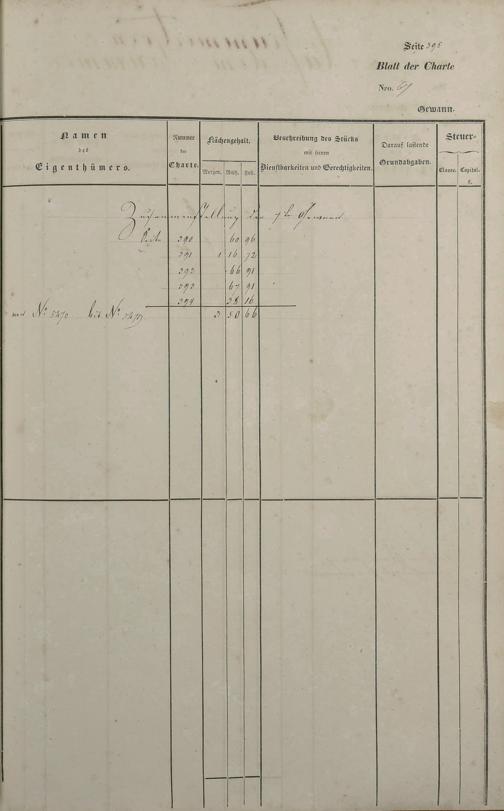 Seite 395
Blatt der Charte
Nro. 67
Gewann.
Namen
des
Eigenthümers.
Nummer
der
Charte.
Flächengehalt.
Morgen. Rth. Fuß.
Beschreibung des Stücks
mit seinen
Dienstbarkeiten und Gerechtigkeiten.
Darauf lastende
Grundabgaben.
Steuer-
Classe. Capital.
fl.
Zusammenstellung der 7te Gewann
Seite 390 60 96
391 1 16 72
392 66 91
393 67 91
394 38 16
von No. bis No. 3 50 66